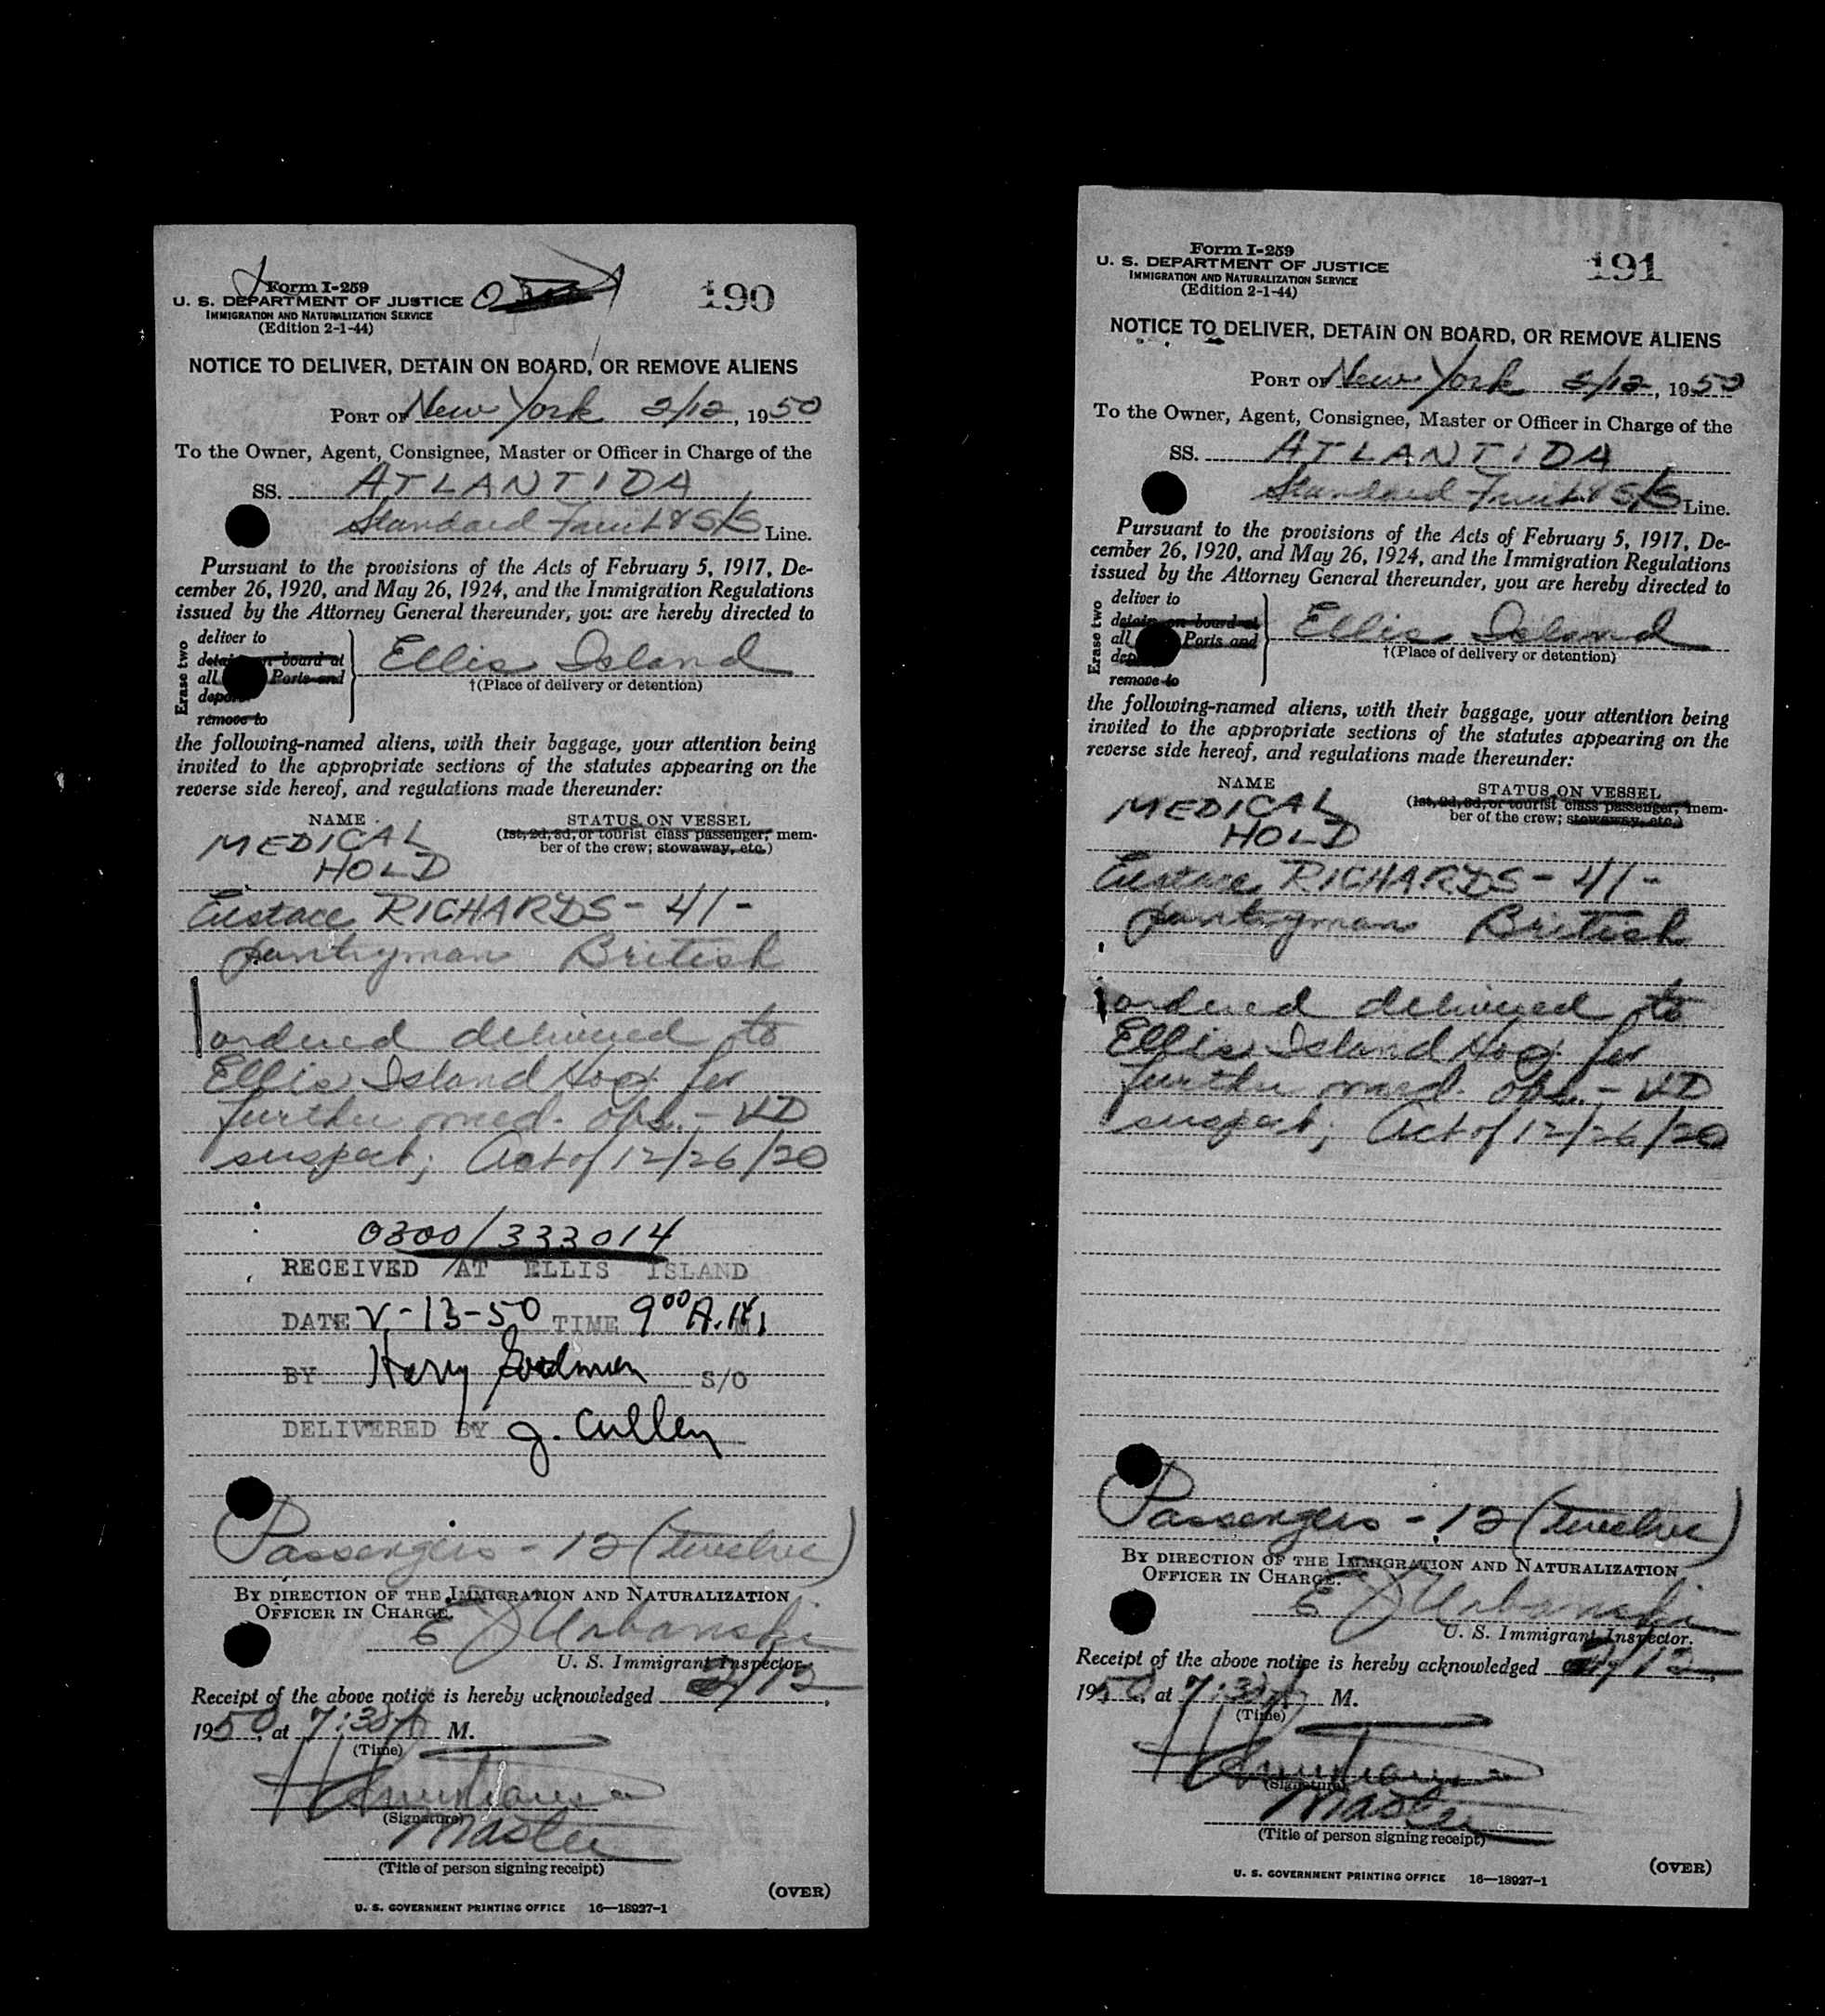 Form I-259
U. S. DEPARTMENT OF JUSTICE
IMMIGRATION AND NATURALIZATION SERVICE
(Edition 2-1-44)
190
NOTICE TO DELIVER, DETAIN ON BOARD, OR REMOVE ALIENS
PORT OF New York 2/12, 1950
To the Owner, Agent, Consignee, Master or Officer in Charge of the
SS. ATLANTIDA
Standard Fruit & S/S Line.
Pursuant to the provisions of the Acts of February 5, 1917, De-
cember 26, 1920, and May 26, 1924, and the Immigration Regulations
issued by the Attorney General thereunder, you are hereby directed to
Erase two
deliver to
detain on board at
all Ports and
remove to
Ellis Island
†(Place of delivery or detention)
the following-named aliens, with their baggage, your attention being
invited to the appropriate sections of the statutes appearing on the
reverse side hereof, and regulations made thereunder:
NAME
STATUS ON VESSEL
(1st, 2d, 3d, or tourist class passenger, mem-
ber of the crew; stowaway, etc.)
MEDICAL
HOLD
Eustace RICHARDS - 41 -
pantryman British
ordered delivered to
Ellis Island Hosp. for
further med. obs. - VD
suspect; Act of 12/26/20
0300/333014
RECEIVED AT ELLIS ISLAND
DATE 2-13-50 TIME 9 00 A.M.
BY Harry Goodman S/O
DELIVERED BY J. Cullen
Passengers - 12 (twelve)
BY DIRECTION OF THE IMMIGRATION AND NATURALIZATION
OFFICER IN CHARGE.
E J Urbanski
U. S. Immigrant Inspector.
Receipt of the above notice is hereby acknowledged 2/12,
1950, at 7:30 A M.
(Time)
(Signature)
Master
(Title of person signing receipt)
(OVER)
U. S. GOVERNMENT PRINTING OFFICE 16—18927-1
Form I-259
U. S. DEPARTMENT OF JUSTICE
IMMIGRATION AND NATURALIZATION SERVICE
(Edition 2-1-44)
191
NOTICE TO DELIVER, DETAIN ON BOARD, OR REMOVE ALIENS
PORT OF New York 2/12, 1950
To the Owner, Agent, Consignee, Master or Officer in Charge of the
SS. ATLANTIDA
Standard Fruit & S/S Line.
Pursuant to the provisions of the Acts of February 5, 1917, De-
cember 26, 1920, and May 26, 1924, and the Immigration Regulations
issued by the Attorney General thereunder, you are hereby directed to
Erase two
deliver to
detain on board at
all Ports and
remove to
Ellis Island
†(Place of delivery or detention)
the following-named aliens, with their baggage, your attention being
invited to the appropriate sections of the statutes appearing on the
reverse side hereof, and regulations made thereunder:
NAME
STATUS ON VESSEL
(1st, 2d, 3d, or tourist class passenger, mem-
ber of the crew; stowaway, etc.)
MEDICAL
HOLD
Eustace RICHARDS - 41 -
pantryman British
ordered delivered to
Ellis Island Hosp. for
further med. obs. - VD
suspect; Act of 12/26/20
Passengers - 12 (twelve)
BY DIRECTION OF THE IMMIGRATION AND NATURALIZATION
OFFICER IN CHARGE.
E J Urbanski
U. S. Immigrant Inspector.
Receipt of the above notice is hereby acknowledged 2/12,
1950, at 7:30 A M.
(Time)
(Signature)
Master
(Title of person signing receipt)
(OVER)
U. S. GOVERNMENT PRINTING OFFICE 16—18927-1